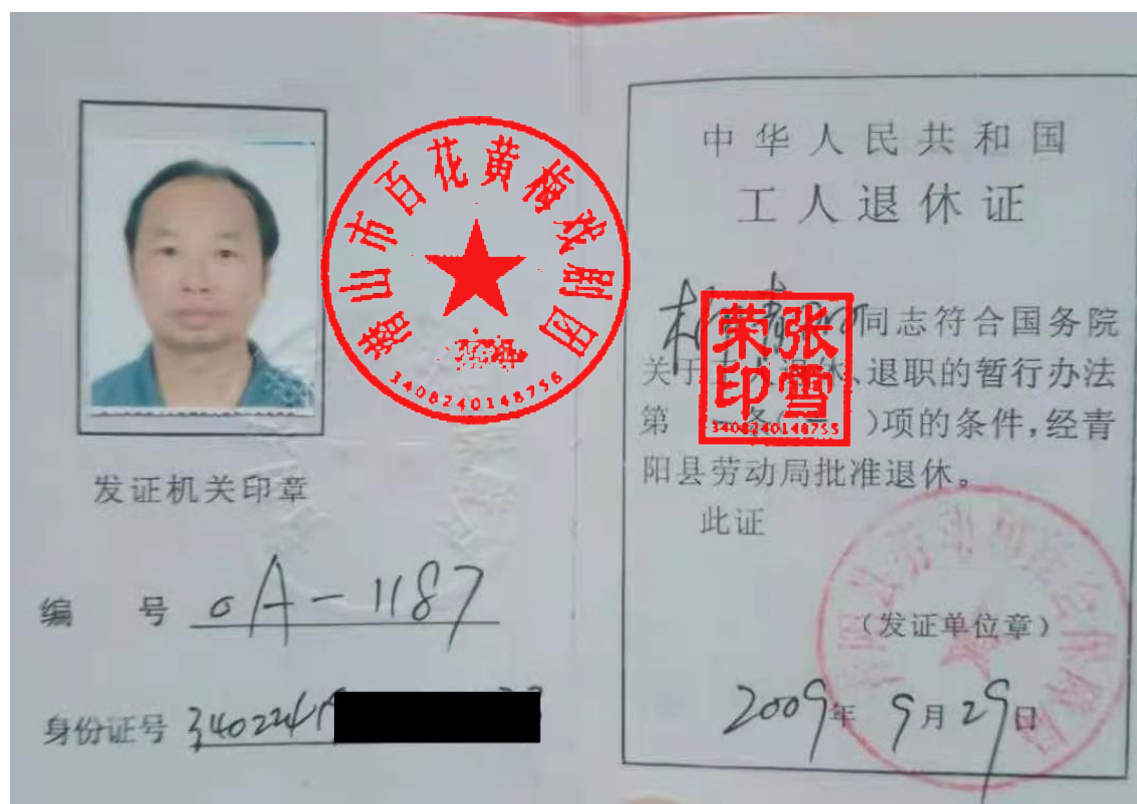 潜山市百花黄梅戏剧团
3408240148756
发证机关印章
编 号 0A-1187
身份证号 3402241
中华人民共和国
工人退休证
同志符合国务院
关于工人退休、退职的暂行办法
第 条( )项的条件,经青
阳县劳动局批准退休。
此证
张雪
荣印
3408240148755
青阳县劳动和社会保障局
(发证单位章)
2009年9月29日